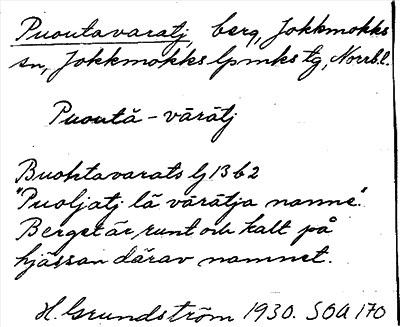 Puoutavaratj, berg, Jokkmokks
sn, Jokkmokks lpmks tg, Norrb.l.
Puoutā-vārātj
Buohtavarats lj 13 b 2
"Puoljatj lā vārātja nanne".
Berget är runt och kalt på
hjässan därav namnet.
H. Grundström 1930. SOA 170